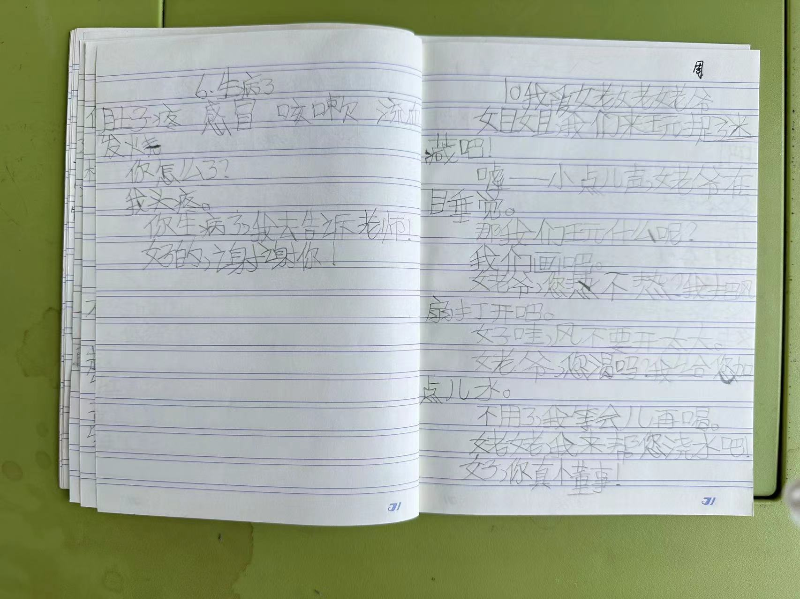 6.生病了
肚子疼 感冒 咳嗽 流
发烧
你怎么了?
我头疼。
你生病了,我去告诉老师!
好的,谢谢你!
周
10我和姥姥姥爷
姐姐,我们来玩捉迷
藏吧!
嘘——小点儿声,姥爷在
睡觉。
那我们玩什么呢?
我们画画吧。
姥爷,您热不热?我把风
扇打开吧。
好哇,风不要开太大。
姥爷,您渴吗?我给您加
点儿水。
不用了,我等会儿再喝。
姥姥,我来帮您浇水吧!
好,你真董事!